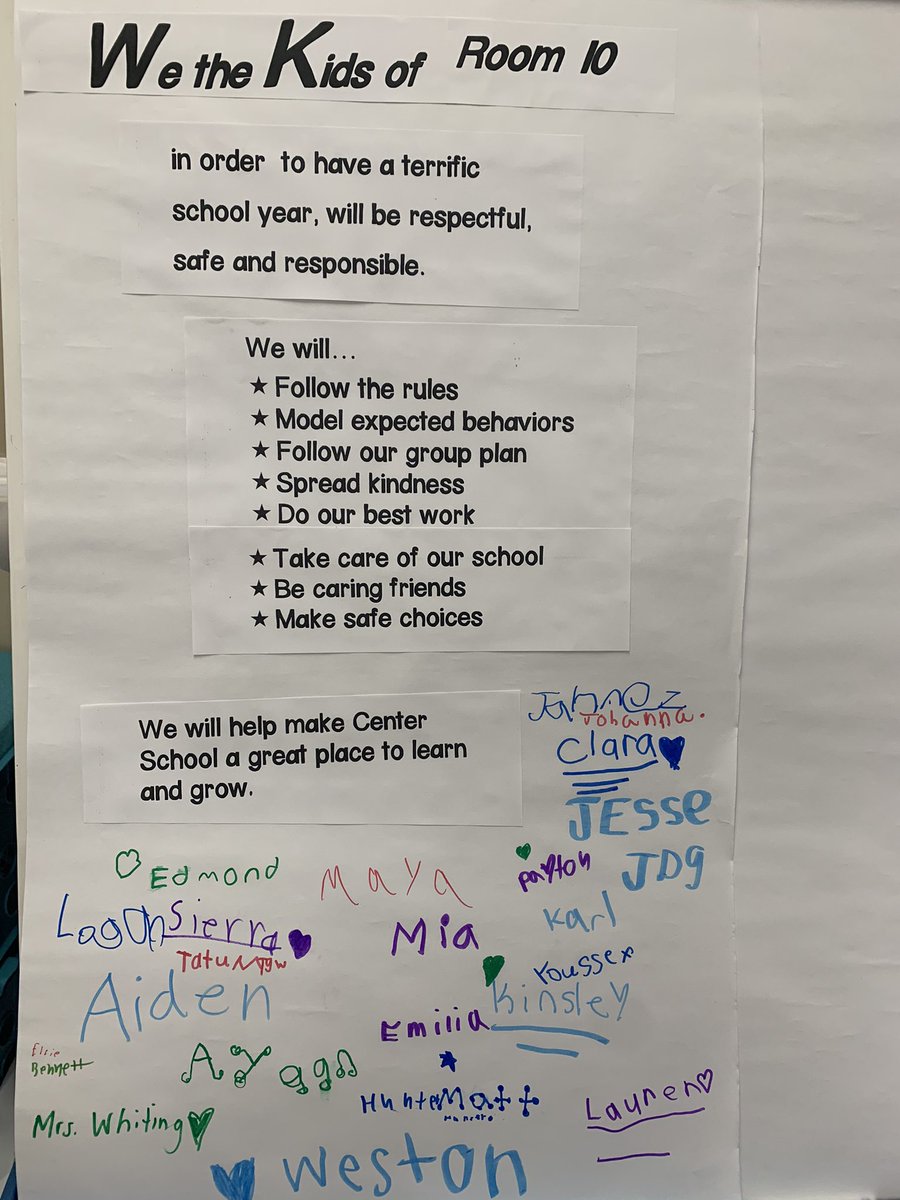 We the Kids of Room 10
in order to have a terrific
school year, will be respectful,
safe and responsible.
We will...
★ Follow the rules
★ Model expected behaviors
★ Follow our group plan
★ Spread kindness
★ Do our best work
★ Take care of our school
★ Be caring friends
★ Make safe choices
We will help make Center
School a great place to learn
and grow.
Johanna.
Clara
JEsse
Edmond
Maya
payton
JDg
Sierra
Mia
Karl
Tatum Tgw
Aiden
Emilia
Kinsley
Elsie
Bennett
Matt
Lauren
Mrs. Whiting
Weston